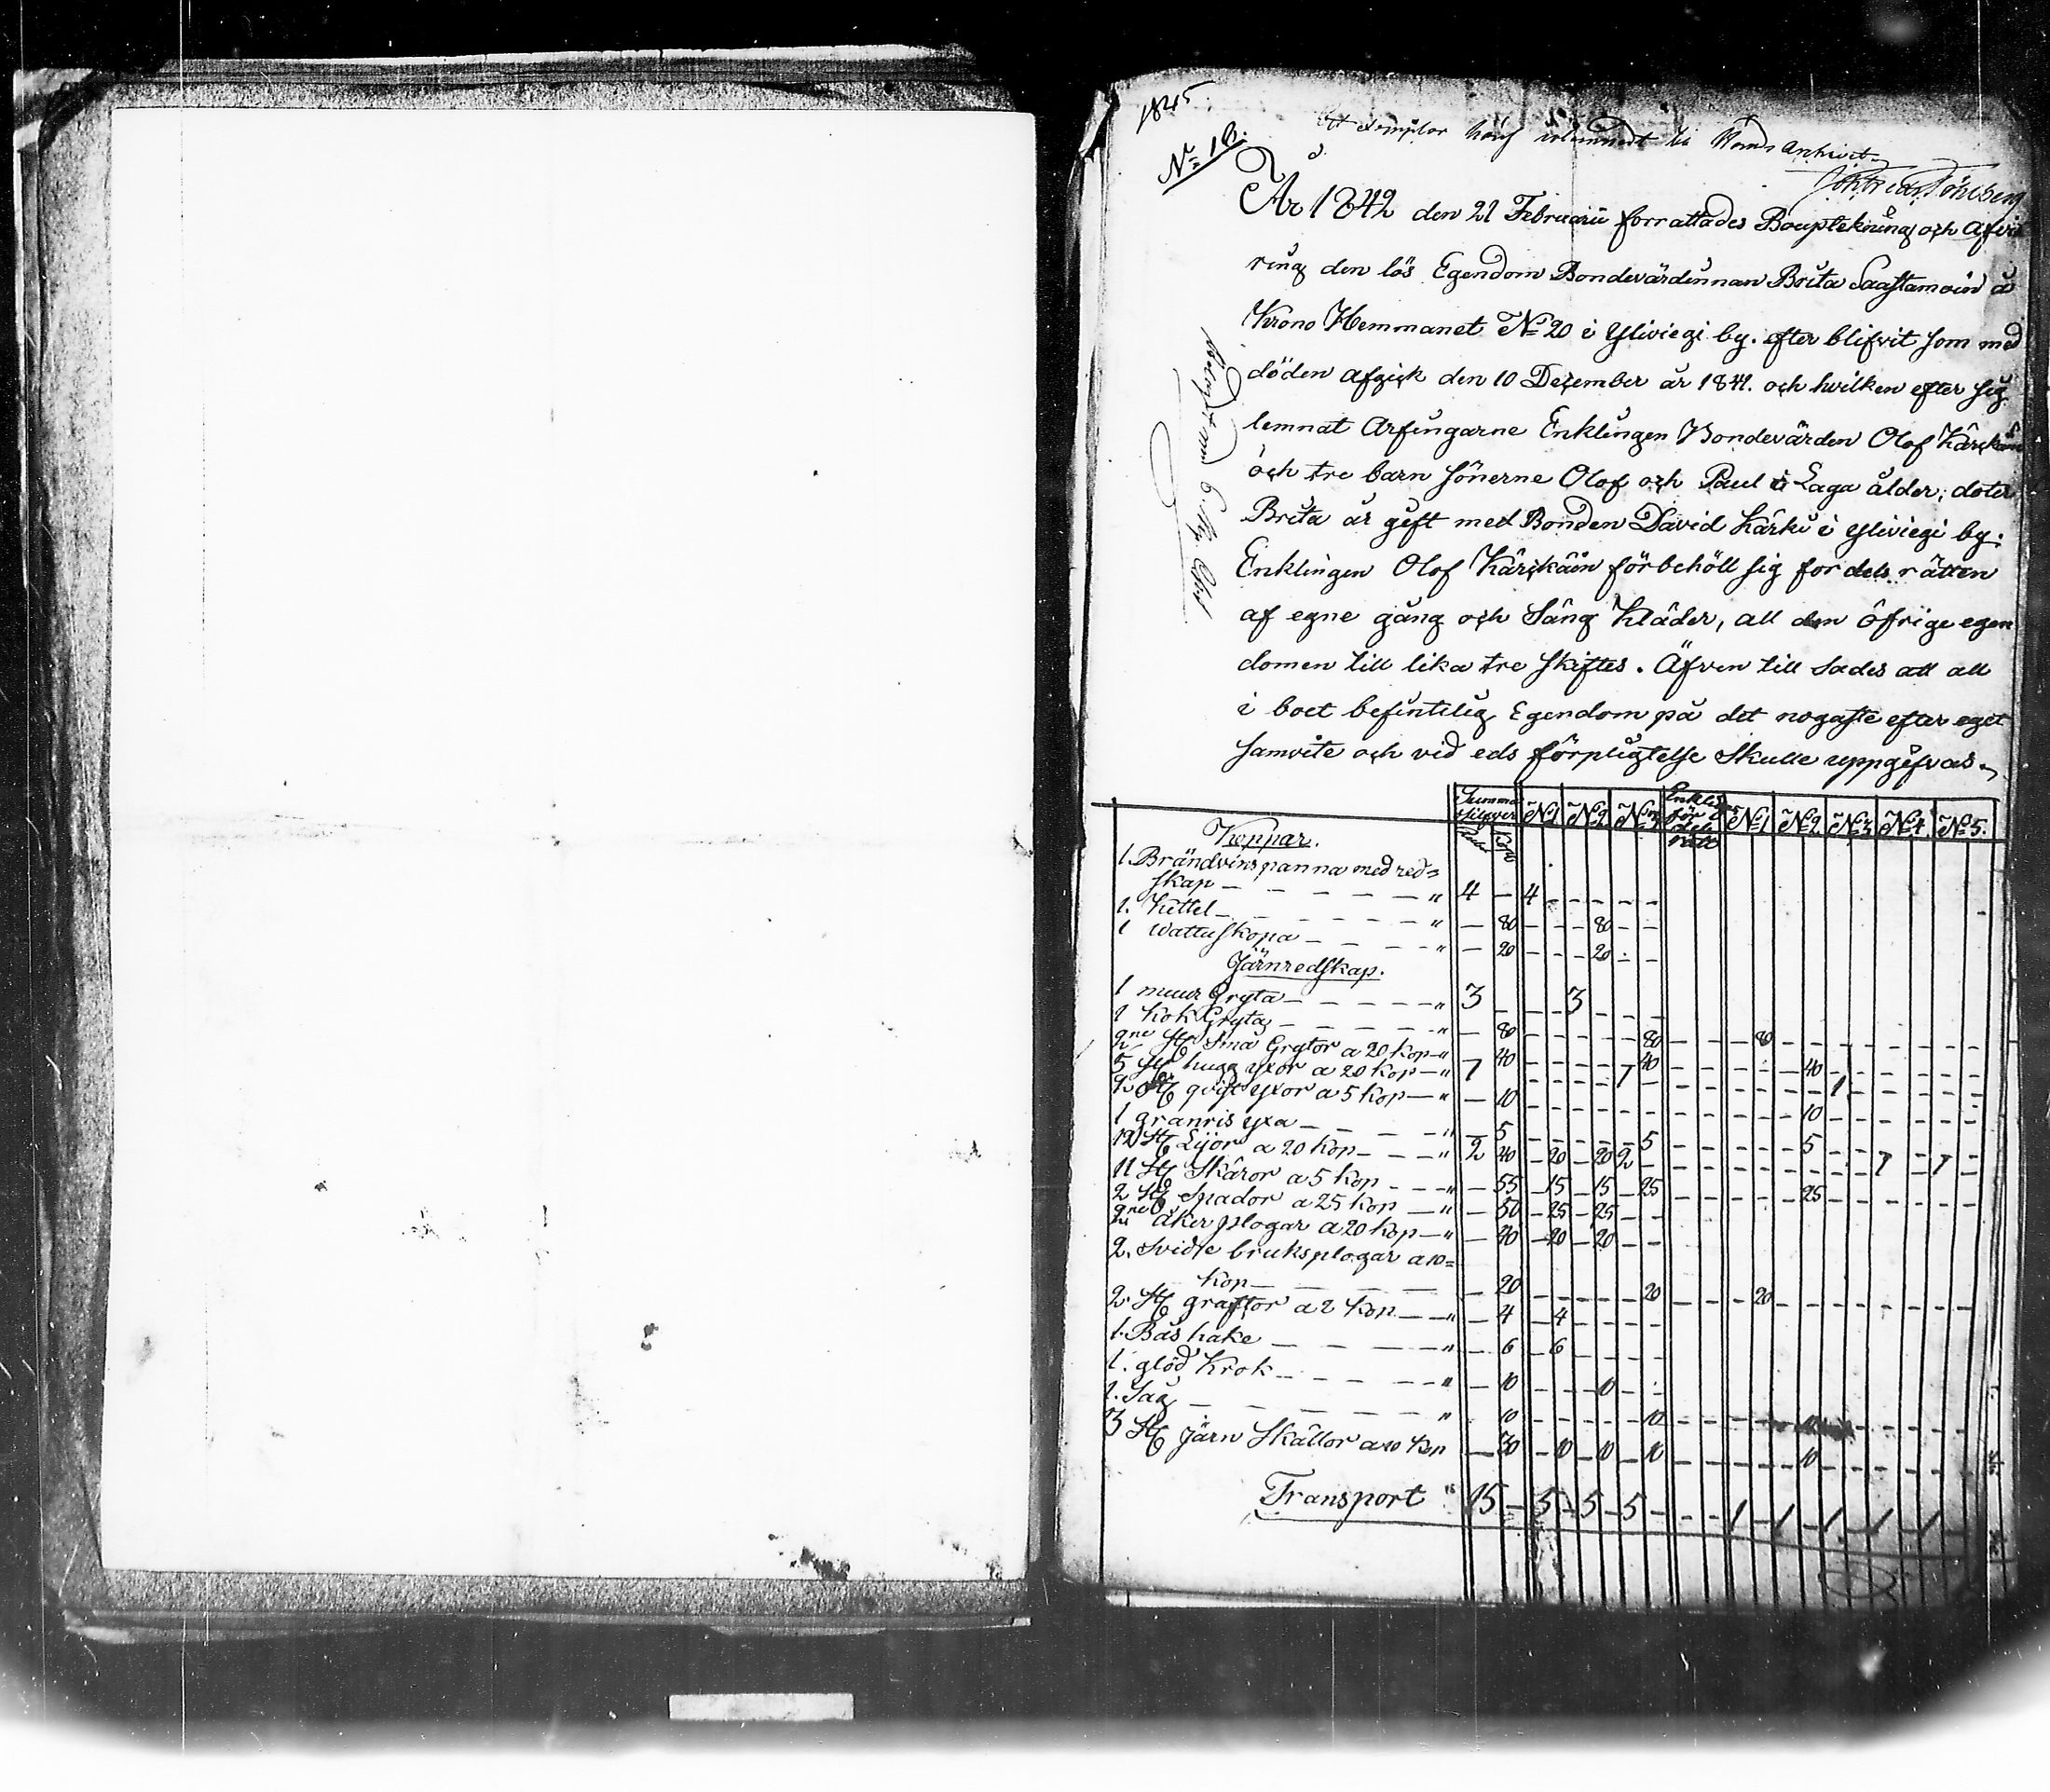 1845
Nº 18.
Ett exemplar häraf inlemnadt till Härads Arkivet
År 1842 den 21 Februarii forrattades Bouptekning och afvit
ring den lös Egendom Bondevärdinnan Brita Saastamoin å
Krono Hemmanet Nº 20 i Yliviegi by. efter blifvit som med
döden afgick den 10 Dezember år 1841. och hvilken efter sig
lemnat Arfingarne Enklingen Bondevärden Olof Kärckäin
och tre barn sönerne Olof och Paul i Laga ålder, doter
Brita är gift med Bonden David Kärki i Yliviegi by.
Enklingen Olof Kärckäin förbehöll sig fordels rätten
af egne gång och Säng Kläder, all den öfrige egen
domen till lika tre skiftes. Äfven till sades att all
i boet befintelig Egendom på det nogaste efter eget
samvite och vid eds förpligtelse skulle uppgifvas.
Summa silfver Nº 1 Nº 2 Nº 3 Enkling för dels rätt Nº 1 Nº 2 Nº 3 Nº 4 Nº 5.
Koppar. Kop
1. Brändvins panna med red=
skap — — — " 4 — 4 — — — — —
1. Kittel — — — " — 80 — — — 80 — —
1 wattu skopa — — — " — 20 — — — 20 — —
Järnredskap.
1 muur Gryta — — — " 3 — — — 3 — — —
1 Kok Gryta — — — " — 80 — — — — — 80 — — — 80 — — —
2ne st Små Grytor a 20 kop — " — 40 — — — — — 40 — — — — — 40 — — —
5 st hugg yxor a 20 Kop — " 1 — — — — — 1 — — — — 1 — — —
2 st qvist yxor a 5 Kop — " — 10 — — — — — — — — — 10 — — —
1 granris yxa — — — " — 5 — — — — — 5 — — — — — 5 — — —
12 st Lijor a 20 Kop — — — " 2 40 — 20 — 20 2 — — — — — 1 — 1 —
11 st Skäror a 5 Kop — — — " — 55 — 15 — 15 — 25 — — — — — 25 — — —
2 st Spador a 25 Kop — " — 50 — 25 — 25 — —
2ne åker plogar a 20 Kop — " — 40 — 20 — 20 — —
2. Svidje bruksplogar a 10=
Kop — — — — 20 — — — — — 20 — — — 20 — — —
2. st graftor a 2 Kop — — " — 4 — 4 — — — —
1. Bås hake — — — " — 6 — 6 — — — —
1. glöd Krok — — — " — 10 — — — 10 — —
1. Såg — — — " — 10 — — — — — 10 — — —
3 st Järn Skällor a 10 Kop — 30 — 10 — 10 — 10 — — — — — 10 — — —
Transport " 15 — 5 — 5 — 5 — — — 1 — 1 — 1 — 1 — 1 —